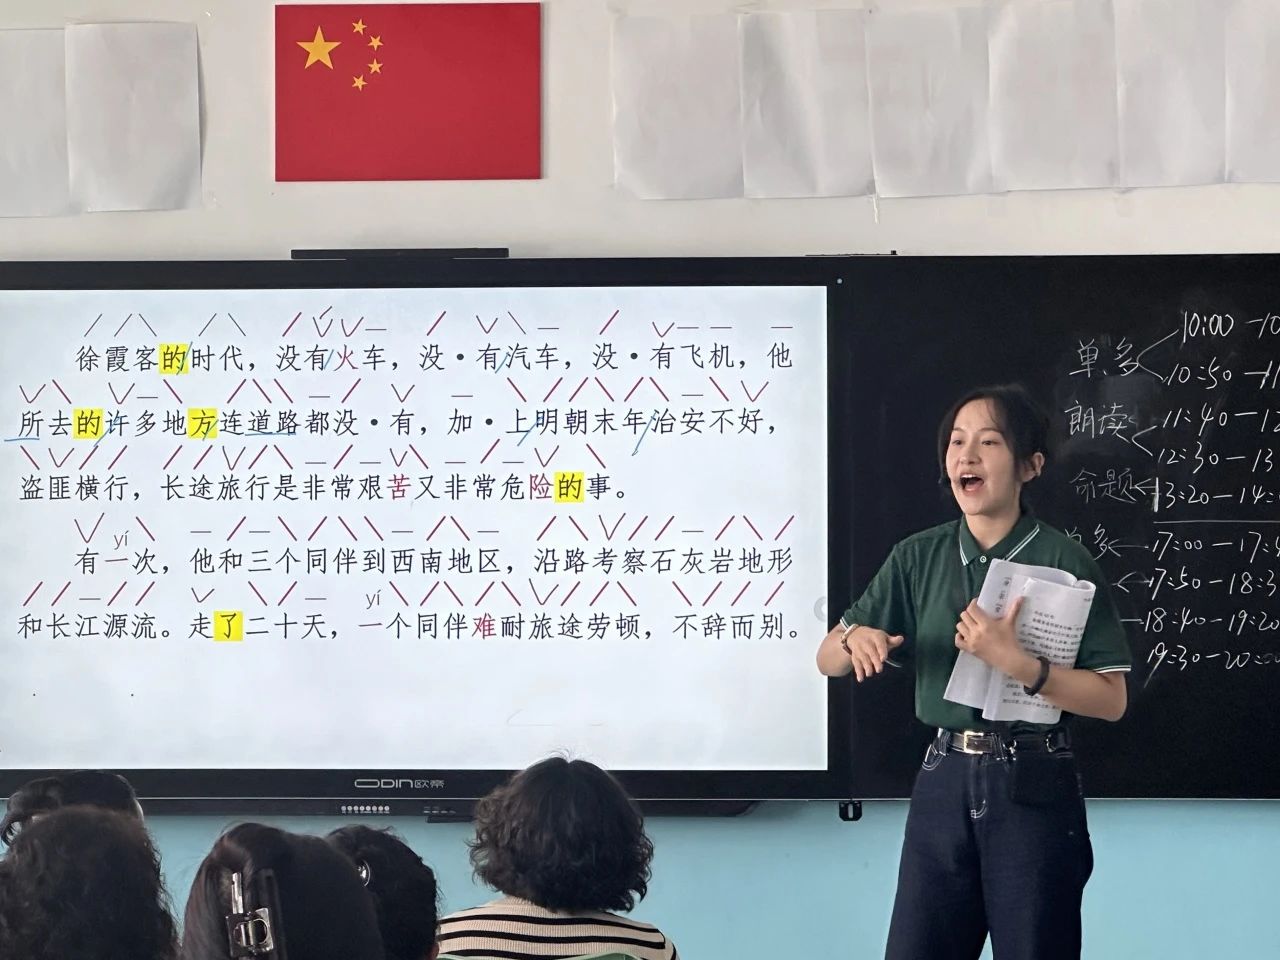 徐霞客的时代，没有火车，没·有汽车，没·有飞机，他
所去的许多地方连道路都没·有，加·上明朝末年治安不好，
盗匪横行，长途旅行是非常艰苦又非常危险的事。
yí
有一次，他和三个同伴到西南地区，沿路考察石灰岩地形
yí
和长江源流。走了二十天，一个同伴难耐旅途劳顿，不辞而别。
ODin欧帝
单多
10:00-10
10:50-11
朗读
11:40-12
12:30-13
命题
13:20-14
17:00-17
17:50-18:3
18:40-19:20
19:30-20:00